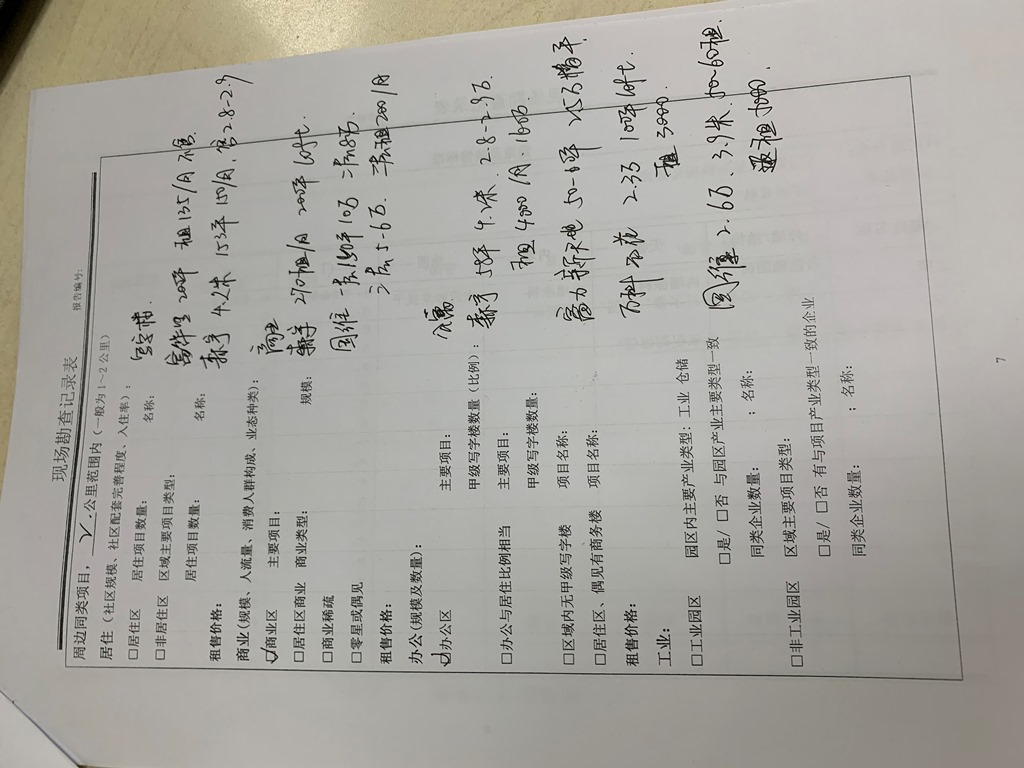 现场勘查记录表
报告编号:
周边同类项目, 2 公里范围内（一般为1~2公里）
居住（社区规模、社区配套完善程度、入住率）:
□居住区 居住项目数量: 名称:
□非居住区 区域主要项目类型:
居住项目数量: 名称:
200坪 租135/月
4.2米 153平 150/月. 售2.8-2.9
租售价格:
商业(规模、人流量、消费人群构成、业态种类):
☑商业区 主要项目:
□居住区商业 商业类型: 规模:
270租/月 200平 loft.
□商业稀疏
国维 一层150平10万 二层8万
□零星或偶见
三层5-6万 二层租200/月
租售价格:
办公(规模及数量):
☑办公区 主要项目:
甲级写字楼数量(比例):
50平 4.2米. 2.8-2.9万
□办公与居住比例相当 主要项目:
租4000/月.
甲级写字楼数量:
□区域内无甲级写字楼 项目名称:
富力新天地 50-60平
□居住区、偶见有商务楼 项目名称:
万科 2.3万 loft
租售价格:
租 5000
工业:
□工业园区 园区内主要产业类型: 工业 仓储
□是/□否 与园区产业主要类型一致
国维 2.6万、3.9米. 50-60租
同类企业数量: ; 名称:
□非工业园区 区域主要项目类型:
□是/□否 有与项目产业类型一致的企业
同类企业数量: ; 名称:
7